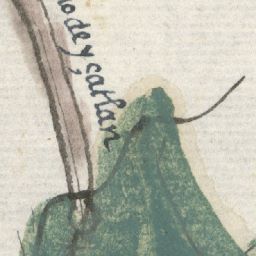 no de ycatlan